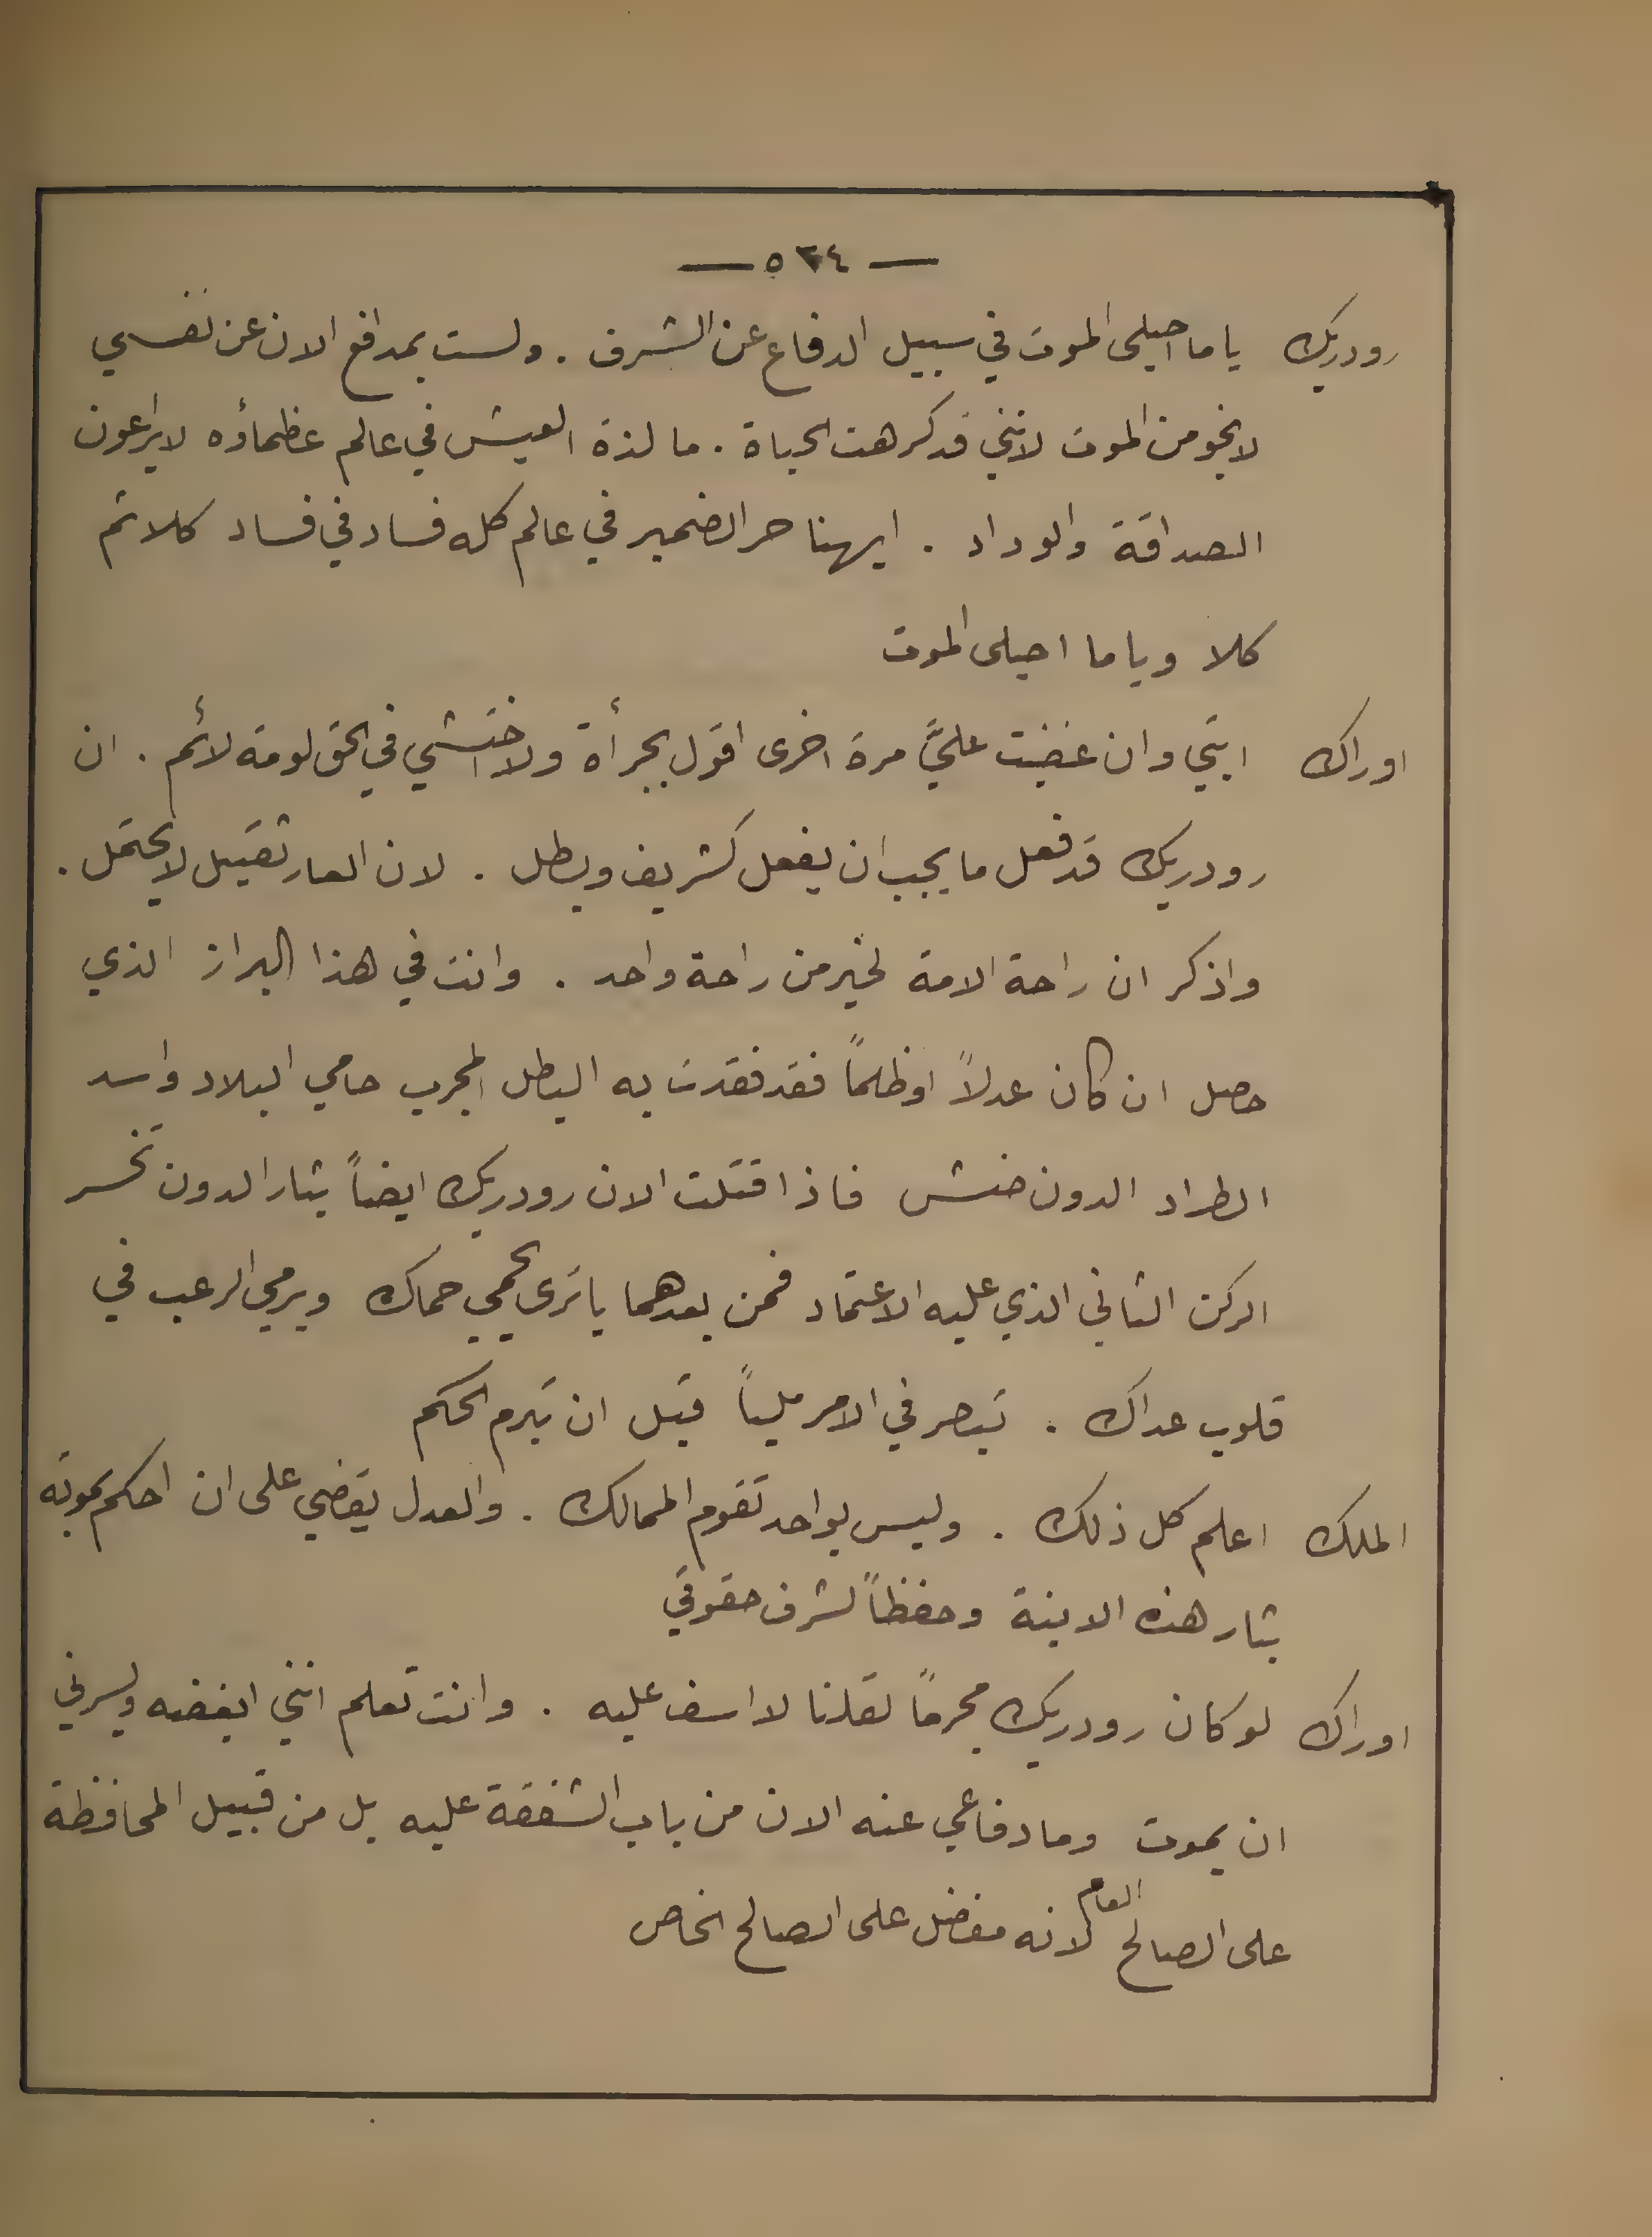 — ٥٣٤ —
رودريك ياما احيلى الموت في سبيل الدفاع عن الشرف . ولست بمدافع الان عن نفسي
لانجو من الموت لانني قد كرهت الحياة . ما لذة العيش في عالم عظماؤه لا يراعون
الصداقة والوداد . ايهنا حر الضمير في عالم كله فساد في فساد كلا ثم
كلا وياما احيلى الموت
اوراك ابتي وان غضبت عليَّ مرة اخرى اقول بجرأة ولا اختشي في الحق لومة لائم . ان
رودريك قد فعل ما يجب ان يفعل كشريف وبطل . لان العار ثقيل لا يحتمل .
واذكر ان راحة الامة لخير من راحة واحد . وانت في هذا البراز الذي
حصل ان كان عدلاً او ظلماً فقد فقدت به البطل المجرب حامي البلاد واسد
الطراد الدون خنش فاذا قتلت الان رودريك ايضاً بثار الدون تخسر
الركن الثاني الذي عليه الاعتماد فمن بعدهما يا ترى يحمي حماك ويرمي الرعب في
قلوب عداك . تبصر في الامر ملياً قبل ان تبرم الحكم
الملك اعلم كل ذلك . وليس بواحد تقوم الممالك . والعدل يقضي على ان احكم بموته
بثار هذه الابنة وحفظاً لشرف حقوقي
اوراك لو كان رودريك مجرماً لقلنا لا اسف عليه . وانت تعلم انني ابغضه ويسرني
ان يموت وما دفاعي عنه الان من باب الشفقة عليه بل من قبيل المحافظة
على الصالح العام لانه مفضل على الصالح الخاص